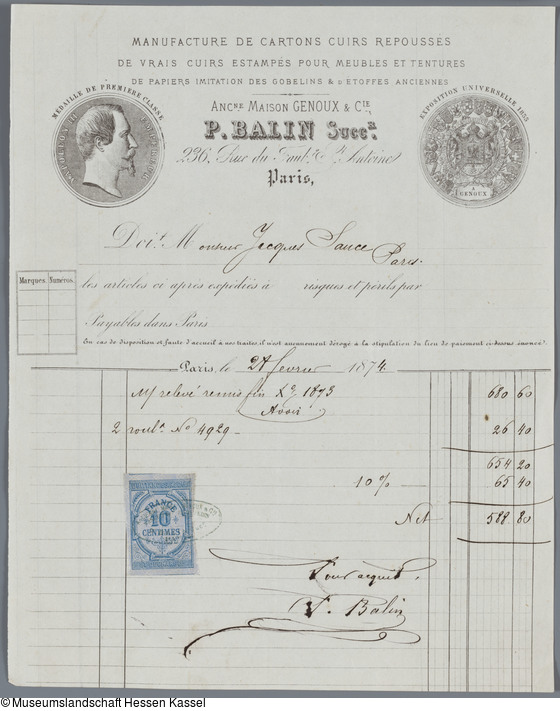 MANUFACTURE DE CARTONS CUIRS REPOUSSÉS
DE VRAIS CUIRS ESTAMPÉS POUR MEUBLES ET TENTURES
DE PAPIERS IMITATION DES GOBELINS & D'ETOFFES ANCIENNES
MÉDAILLE DE PREMIÈRE CLASSE
NAPOLEON III EMPEREUR
ANCNE MAISON GENOUX & CIE
P. BALIN SUCCR
236, Rue du Faubg St Antoine
Paris,
EXPOSITION UNIVERSELLE 1855
A
GENOUX
Doit Monsieur Jacques Sauce Paris.
Marques. Numéros.
les articles ci après expédiés à risques et périls par
Payables dans Paris
En cas de disposition et faute d'accueil à nos traites il n'est aucunement dérogé à la stipulation du lieu de paiement ci-dessus énoncé.
Paris, le 28 février 1874
M/ relevé remis fin Xbre 1873 680 60
Avoir
2 roulx No 4929 26 40
654 20
10% 65 40
Net 588 80
FRANCE
10
CENTIMES
Pour acquit.
P. Balin
© Museumslandschaft Hessen Kassel